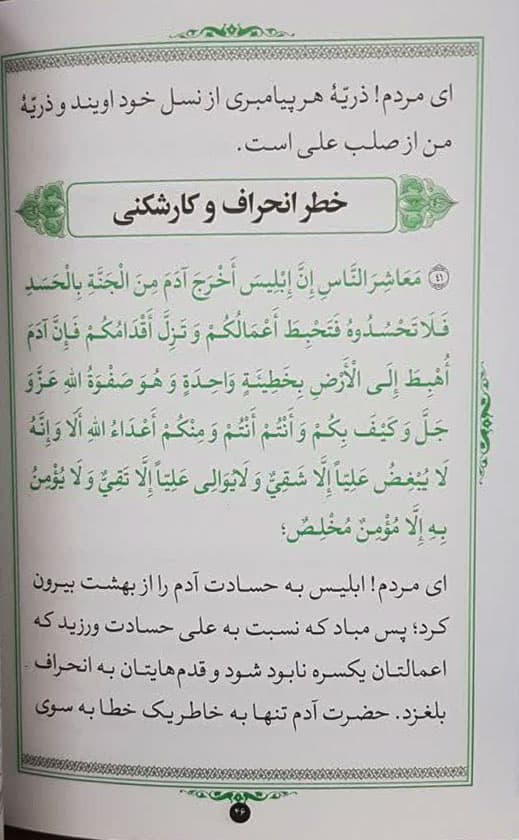 ای مردم! ذریّهٔ هر پیامبری از نسل خود اویند و ذریّهٔ
من از صلب علی است.
خطر انحراف و کارشکنی
۴۱ مَعَاشِرَ النَّاسِ إِنَّ إِبْلِيسَ أَخْرَجَ آدَمَ مِنَ الْجَنَّةِ بِالْحَسَدِ
فَلَا تَحْسُدُوهُ فَتَحْبِطَ أَعْمَالُكُمْ وَ تَزِلَّ أَقْدَامُكُمْ فَإِنَّ آدَمَ
أُهْبِطَ إِلَى الْأَرْضِ بِخَطِيئَةٍ وَاحِدَةٍ وَ هُوَ صَفْوَةُ اللهِ عَزَّ وَ
جَلَّ وَ كَيْفَ بِكُمْ وَ أَنْتُمْ أَنْتُمْ وَ مِنْكُمْ أَعْدَاءُ اللهِ أَلَا وَ إِنَّهُ
لَا يُبْغِضُ عَلِيّاً إِلَّا شَقِيٌّ وَ لَا يُوَالِي عَلِيّاً إِلَّا تَقِيٌّ وَ لَا يُؤْمِنُ
بِهِ إِلَّا مُؤْمِنٌ مُخْلِصٌ؛
ای مردم! ابلیس به حسادت آدم را از بهشت بیرون
کرد؛ پس مباد که نسبت به علی حسادت ورزید که
اعمالتان یکسره نابود شود و قدم‌هایتان به انحراف
بلغزد. حضرت آدم تنها به خاطر یک خطا به سوی
۴۶